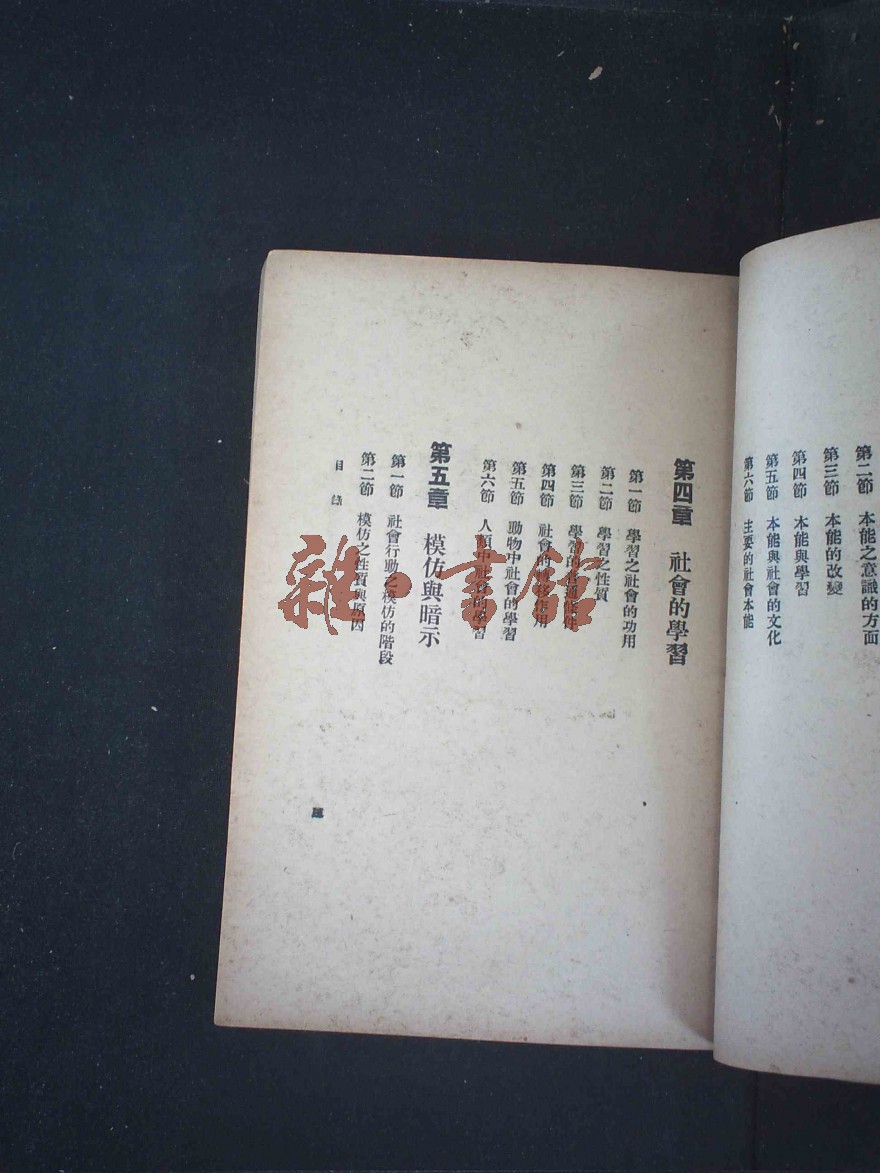 第二節 本能之意識的方面
第三節 本能的改變
第四節 本能與學習
第五節 本能與社會的文化
第六節 主要的社會本能
第四章 社會的學習
第一節 學習之社會的功用
第二節 學習之性質
第三節 學習的
第四節 社會的
第五節 動物中社會的學習
第六節 人類中社會的學習
第五章 模仿與暗示
第一節 社會行動之模仿的階段
第二節 模仿之性質與原因
目錄
雜·書館